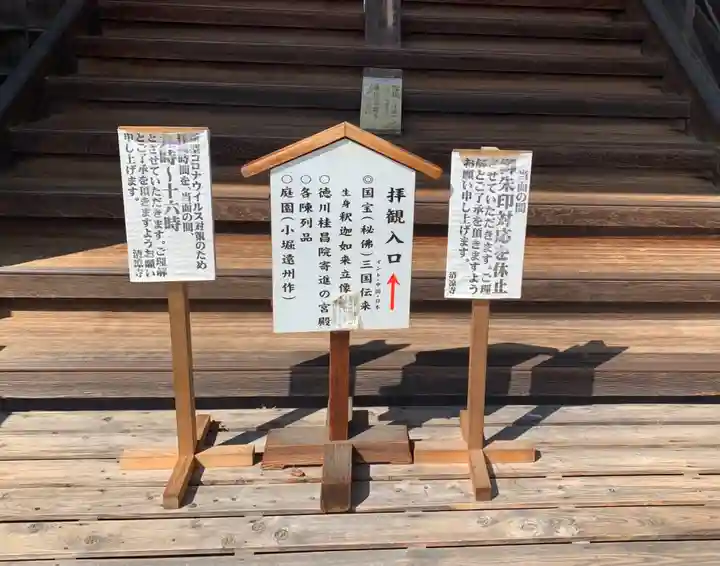 拝観入口
◎国宝(秘佛)三国伝来
インド・中国・日本
生身釈迦如来立像
○徳川桂昌院寄進の宮殿
○各陳列品
○庭園(小堀遠州作)
当面の間
御朱印対応を休止
させていただきます。ご理
解とご了承を頂きますよう
お願い申し上げます。
清凉寺
新型コロナウイルス対策のため
拝観時間を、当面の間、
時〜十六時
とさせていただきます。ご理解
とご了承を頂きますようお願い
申し上げます。
清凉寺